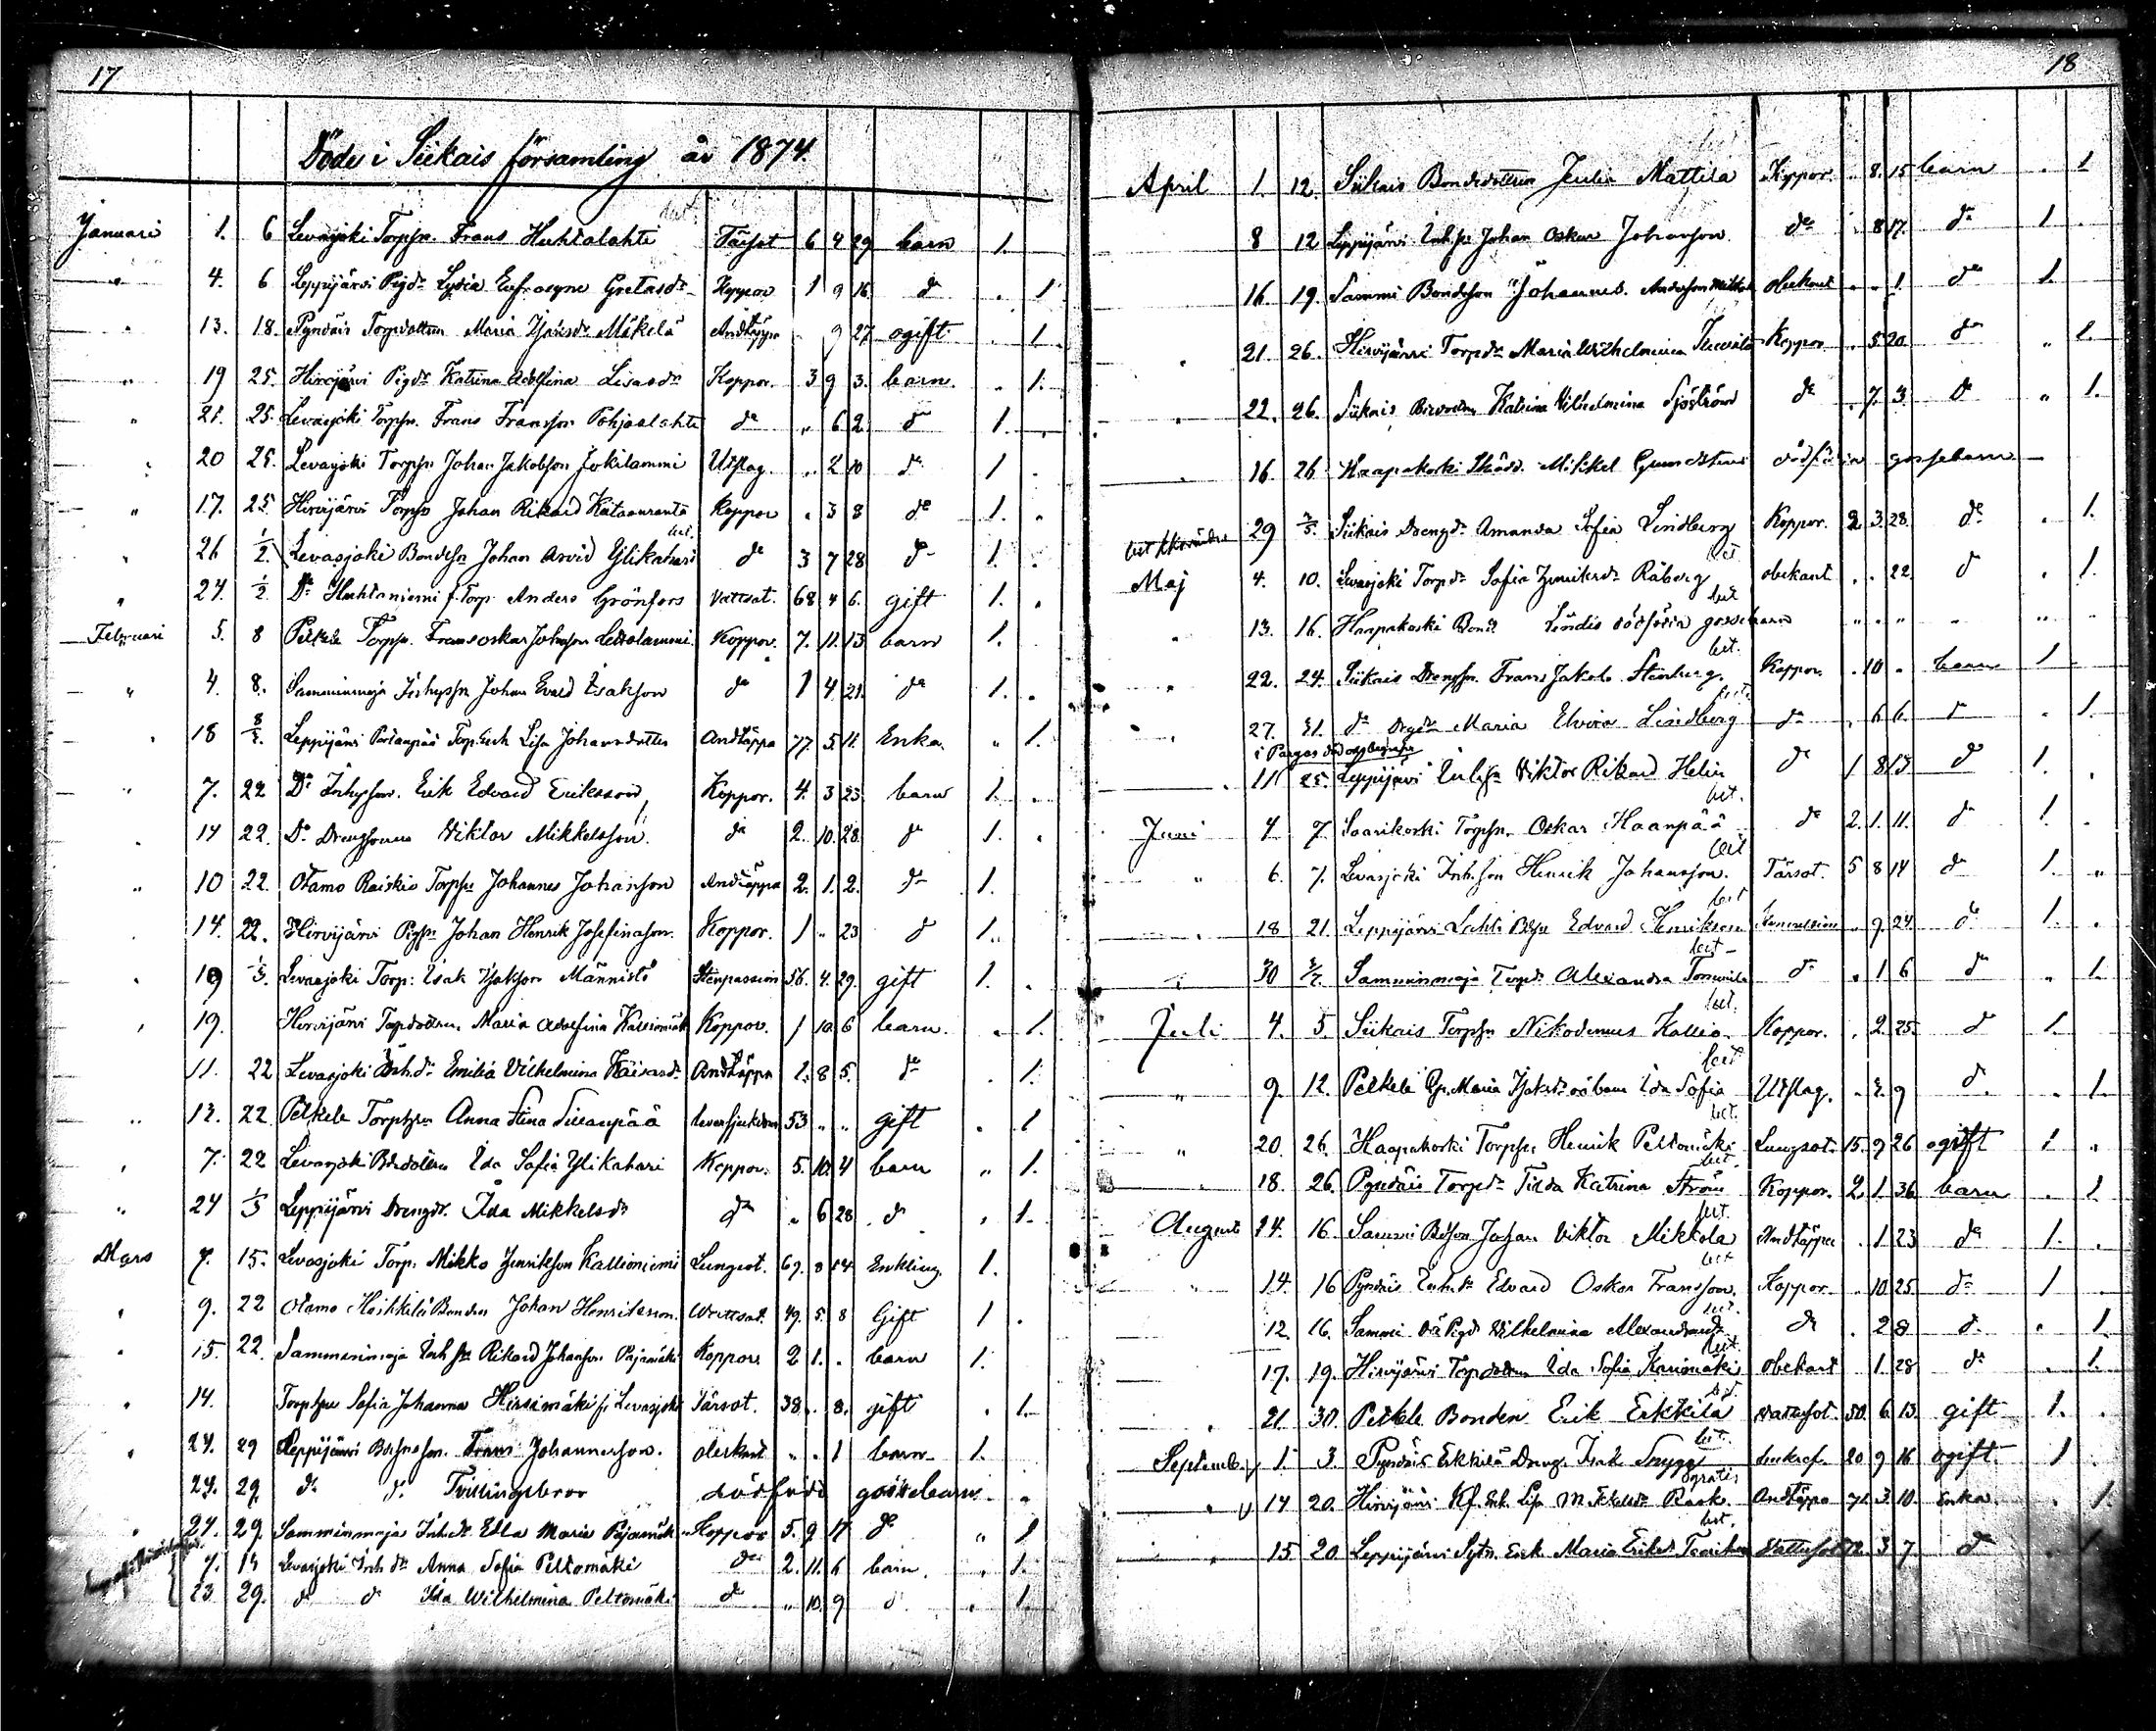 17
Döde i Siikais församling år 1874.
Januari 1. 6 Levasjoki Torpsn. Frans Huhtalahti Tärsot 6 4 29 barn 1.
" 4. 6 Leppijärvi Pigdr Lydia Eufrosyne Gretasdr Koppor 1 9 16 do . 1
" 13. 18. Pyndäis Torpdottern Maria Isaksdr Mäkelä Andtäppa " 9 27 ogift . 1.
" 19 25. Hirvijärvi Pigdr Katrina Adolfina Lisasdr Koppor. 3 9 3. barn. . 1.
" 21. 25. Levasjoki Torpsn. Frans Fransson Pohjaslahti do " 6 2. do 1. .
" 20 25. Levasjoki Torpsn Johan Jakobsson Jokilammi Utslag. " 2 10 do 1 .
" 17. 25. Hirvijärvi Torpsn Johan Rikard Kataouranta Koppor . 3 8 do 1. .
" 26 1/2. Levasjoki Bondesn Johan Arvid Ylikahari do 3 7 28 do 1. .
" 24. 1/2. Do Huhtaniemi f. Torp. Anders Grönfors Vattsot. 68 4 6. gift 1. .
Februari 5. 8 Petkele Torpsn. Frans Oskar Johansson Koppor. 7. 11. 13. barn 1.
" 4. 8. Samminmaja Inhypsn Johan Evald Isakson do 1 4 21. do 1. .
" 18 8/3. Leppijärvi Torp.Enk Lisa Johansdotter Andtäppa 77. 5. 11. Enka. " 1.
" 7. 22 Do Inhypson. Erik Edvard Eriksson Koppor. 4. 3 23. barn 1. .
14 22. Do Drengsonen Viktor Mikkelsson do 2. 10. 28. do 1. .
" 10 22. Otamo Raiskio Torpsn Johannes Johansson Andtäppa 2. 1. 2. do 1.
14. 22. Hirvijärvi Pigsn Johan Henrik Josefinason. Koppor. 1 " 23 do 1.
19 1/3. Levasjoki Torp. Isak Isakson Männistö 56. 4. 29. gift 1. .
19. Hirvijärvi Torpdottern Maria Adolfina Koppor. 1 10 6 barn. . 1.
11. 22 Levasjoki Inh.dr Emilia Vilhelmina Kaisasdr Andtäppa 1. 8 5. do . 1.
" 12. 22. Petkele Torphn Anna Stina 53 " " gift . 1
7. 22 Levasjoki Bdedottern Ida Sofia Ylikahari Koppor. 5. 10 4 barn " 1.
" 24 1/3 Leppijärvi Drengdr. Ida Mikkelsdr do " 6 28 do . 1.
Mars 7. 15. Levasjoki Torp. Mikko Henriksson Kallioniemi Lungsot. 67. 8 14 Enkling. 1.
9. 22 Otamo Heikkilä Bonden Johan Henriksson. Vattsot. 49. 5. 8 Gift 1 .
15. 22. Samminmaja Inh sn Rikard Johansson Pajamäki Koppor. 2 1. . barn 1.
14. Torphn Sofia Johanna Hirsimäki fr. Levasjoki Tärsot. 38. . 8. gift . 1.
24. 29 Leppijärvi Frans Johannesson. obekant " . 1 barn 1.
24. 29. do do Tvillingsbror dödfödd gossebarn .
24. 29. Samminmaja Inh.dr Edla Maria Pajamäki Koppor 5. 9 17 do " 1
7. 15 Levasjoki Inh dr Anna Sofia Peltomäki do 2. 11. 6 barn. . 1.
23. 29. do do Ida Wilhelmina Peltomäki do " 10. 9 d . 1.
18
April 1. 12. Siikais Bondedottern Mattila Koppor. . 8. 15 barn . 1
8 12 Leppijärvi Inh.sn Johan Oskar Johansson do . 8 17. do 1 .
16. 19. Sammi Bondeson Johannes Andersson obekant . . 1. do 1.
. 21. 26. Hirvijärvi Torpdr Maria Wilhelmina Koppor . 5. 20. do " 1.
. 22. 26. Siikais Katrina Vilhelmina Sjöström do . 7. 3. do " 1.
. 16. 26 Haapakoski Mikkel dödfödda gossebarn
29 3/5. Siikais Drengdr Amanda Sofia Lindberg Koppor. 2. 3. 28. do . 1.
Maj 4. 10. Levasjoki Torpdr Sofia Henriksdr Råberg obekant . . 22. do . 1.
" 13. 16. Haapakoski Bond Lindis dödfödda gossebarn " " " " "
" 22. 24. Siikais Drengsn. Frans Jakob Stenberg. Koppor. . 10 . barn 1 .
" 27. 31. do Drgdr Maria Elvira Lindberg do . 6 6. do . 1.
i Pargas död och begrafven
. 11 25. Leppijärvi Inh.sn Viktor Rikard Helin do 1 8 13. do 1. .
Juni 4 7. Saarikoski Torpsn. Oskar Haanpää do 2. 1. 11. do 1. .
" 6. 7. Levasjoki Inh.son Henrik Johansson. Tärsot. 5 8 14 do 1. "
. 18 21. Leppijärvi Lahti Bsn Edvard Henriksson . 9 24. do 1. .
30 5/7. Samminmaja Torpdr Alexandra do . 1 6 do " 1.
Juli 4. 5. Siikais Torpsn Nikodemus Kallio Koppor. . 2 25. do 1.
" 9. 12. Petkele Maria Isaksdr oä barn Ida Sofia Utslag. . 2. 9 do . 1.
" 20. 26. Haapakoski Torpsn Henrik Peltomäki Lungsot. 15. 9 26 ogift 1 "
18. 26. Pyndäis Torpdr Tilda Katrina Ström Koppor. 2. 1. 36. barn . 1.
August 14. 16. Sammi Bdson Johan Viktor Mikkola Andtäppa . 1 23 do 1. .
" 14. 16 Pyndäis Inh.sn Edvard Oskar Fransson. Koppor. . 10 25. do 1 .
12. 16. Sammi Oä Pigdr Vilhelmina Alexandrasdr do . 2 8 do . 1.
17. 19. Hirvijärvi Torpdottern Ida Sofia obekant . 1. 28 do . 1.
. 21. 30. Petkele Bonden Erik Erkkilä Vattusot. 50. 6. 13. gift 1. .
September 1. 3. Pyndäis Erkkilä Dreng. Isak Snygg 20 9 16 ogift 1 .
gratis
14 20. Hirvijärvi Enk. Lisa Mikkelsdr Rask. Andtäppa 71. 3. 10. Enka. . 1.
15 20. Leppijärvi Enk Maria Eriksdr Vattusot 72. 3 7. do . 1.